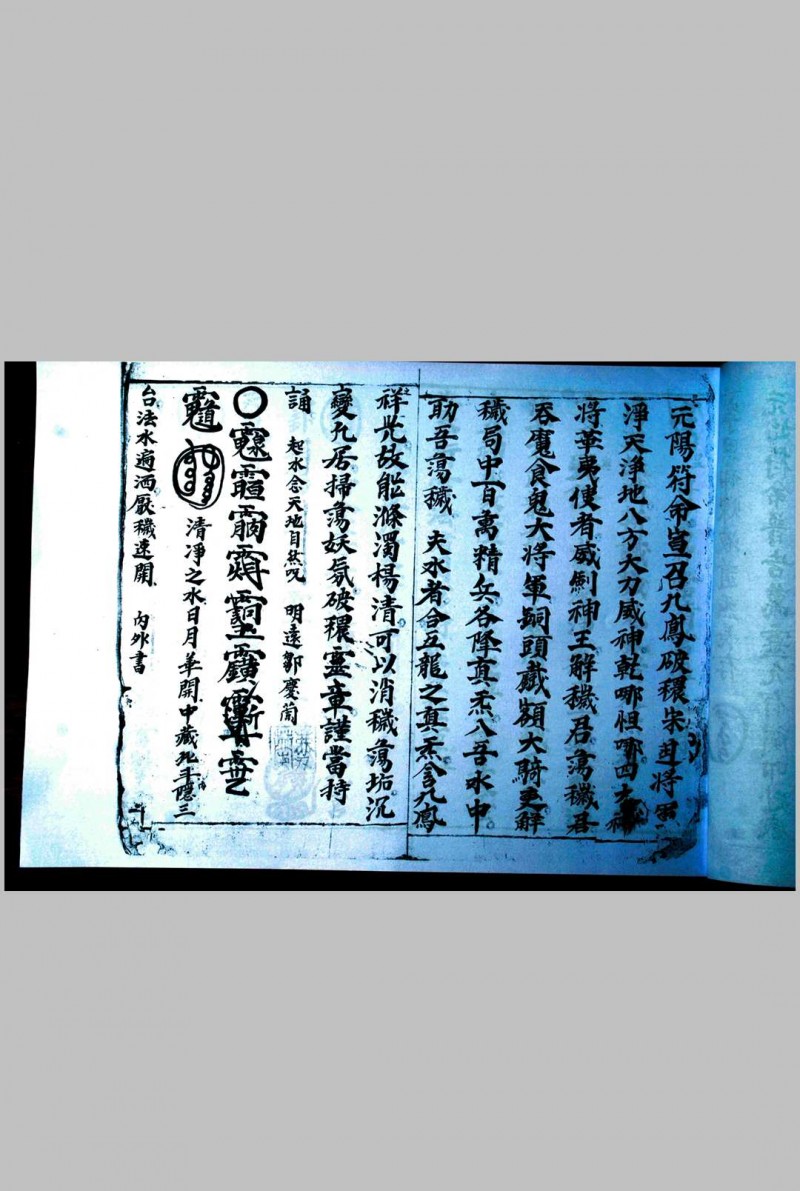 元陽符命宣召九鳳破穢朱
淨天淨地八方大力威神乾哪怛哪四
將華夷使者威劍神王解穢君蕩穢君
吞魔食鬼大將軍銅頭鐵額大騎吏解
穢局中百萬精兵各降真炁入吾水中
助吾蕩穢 夫水者合五龍之真炁含九鳳
祥光故能滌濁楊清可以消穢蕩垢沉
變九居掃蕩妖氛破穢靈章謹當持
誦 起水念天地自然咒 明遠鄒慶蘭
清凈之水日月華開中藏北斗隱三
台法水遍洒厭穢速開 內外書